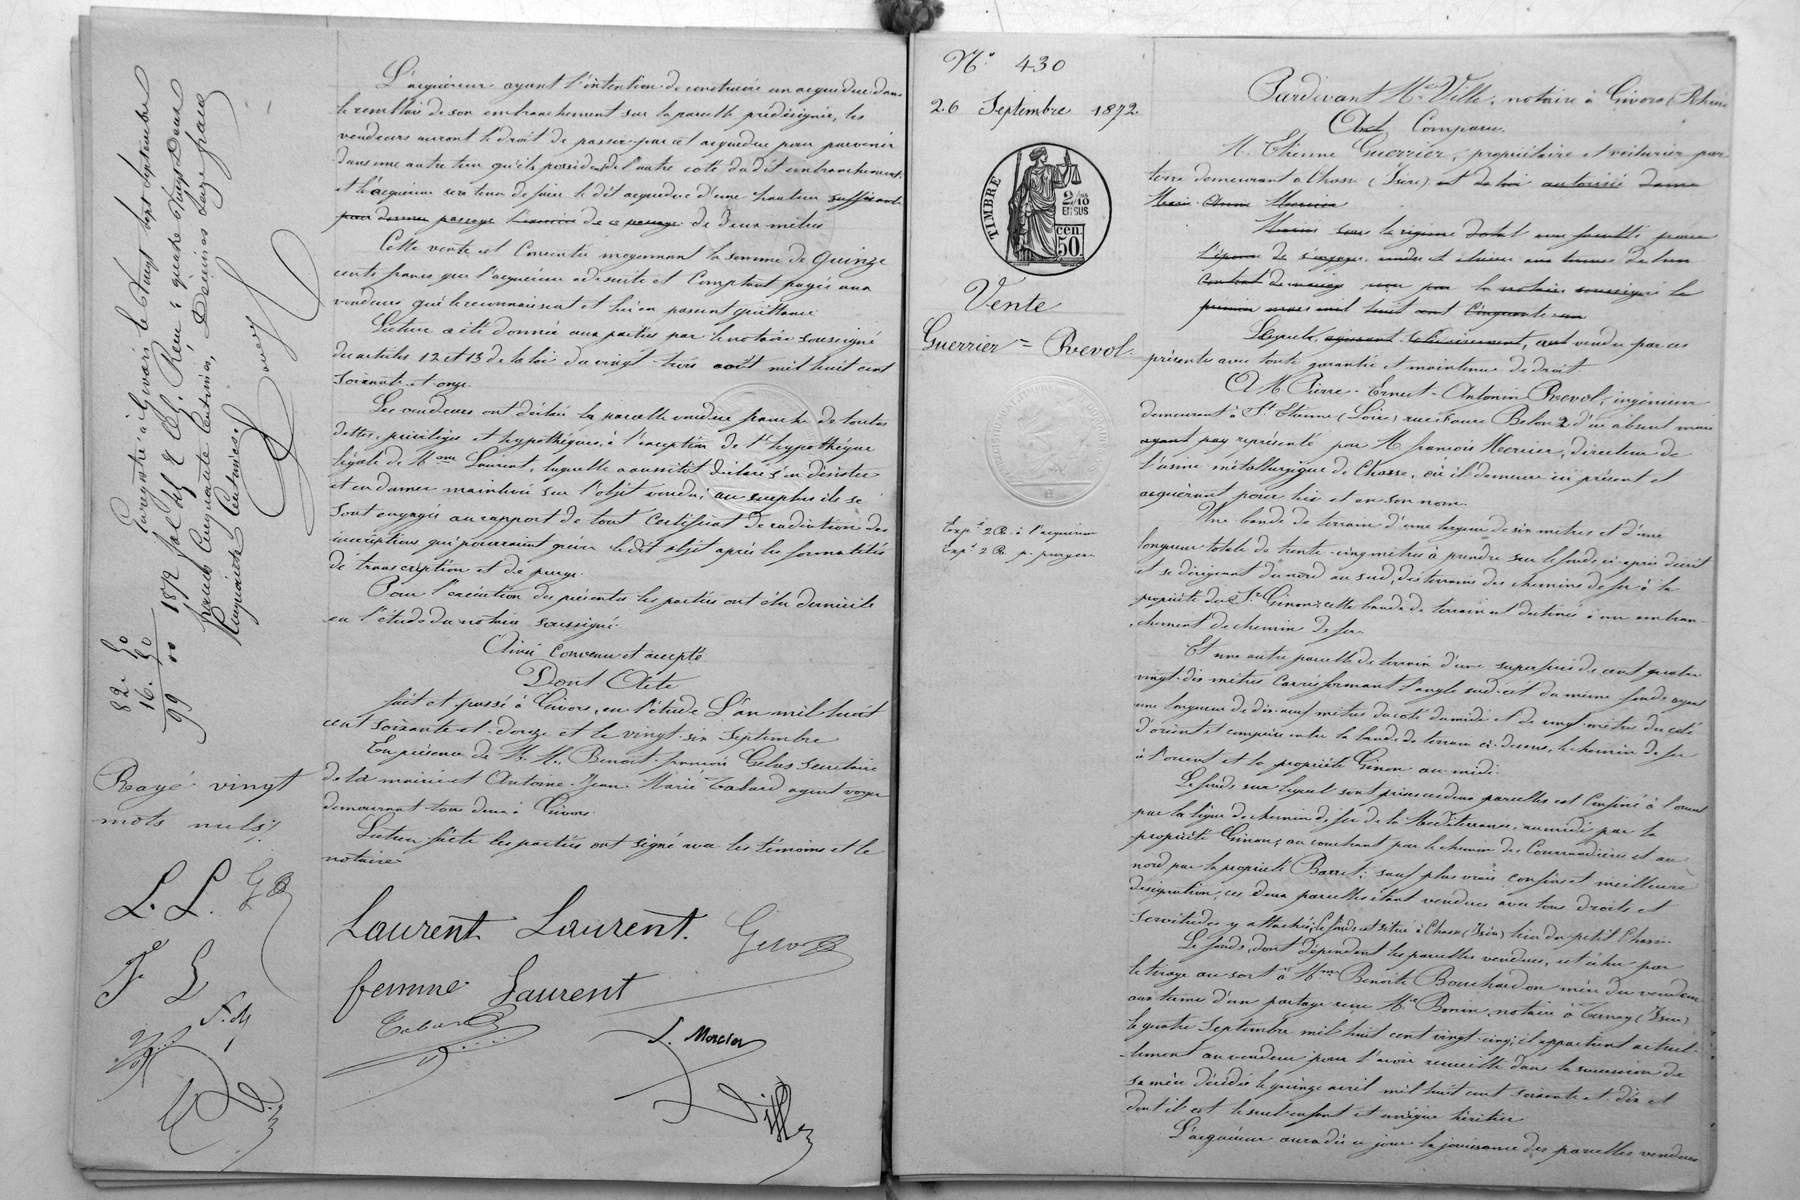 L'acquéreur ayant l'intention de construire un acqueduc dans
le remblai de son embranchement sur la parcelle prédésignée, les
vendeurs auront le droit de passer par cet acqueduc pour parvenir
dans une autre terre qu'ils possèdent de l'autre coté du dit embranchement
et l'acquéreur sera tenu de faire le dit acqueduc d'une hauteur suffisante
pour donner passage de ce passage de deux mètres
Cette vente est consentie moyennant la somme de Quinze
cents francs que l'acquéreur a de suite et comptant payés aux
vendeurs qui le reconnaissent et lui en passent quittance
Lecture a été donnée aux parties par le notaire soussigné
des articles 12 et 13 de la loi du vingt-trois août mil huit cent
soixante-et-onze.
Les vendeurs ont déclaré la parcelle vendue franche de toutes
dettes, privilèges et hypothèques, à l'exception de l'hypothèque
légale de Mme Laurent, laquelle a aussitôt déclaré s'en désister
et en donner mainlevée sur l'objet vendu; au surplus ils se
sont engagés au rapport de tout certificat de radiation des
inscriptions qui pourraient grever le dit objet après les formalités
de transcription et de purge.
Pour l'exécution des présentes les parties ont élu domicile
en l'étude du notaire soussigné.
Ainsi convenu et accepté
Dont Acte
fait et passé à Givors, en l'étude L'an mil huit
cent soixante-et-douze et le vingt-six Septembre
En présence de M.M. Benoit-françois Gelas secrétaire
de la mairie et Antoine-Jean-Marie Tabard agent voyer
demeurant tous deux à Givors.
Lecture faite les parties ont signé avec les témoins et le
notaire
Laurent Laurent.
femme Laurent
Tabard
f. Mercier
Ville
Enregistré à Givors le Vingt Sept Septembre
1872 fol
Reçu Quatre Vingt Deux
francs Cinquante Centimes, Décimes Seize francs
Cinquante Centimes.
82. 50
16. 50
99 00
Rayé vingt
mots nuls
L. L.
f. L
f. M
N° 430
26 Septembre 1872
TIMBRE
2/10
EN SUS
cen.
50.
Vente
Guerrier = Prevol.
Expn 2 R. à l'acquéreur
Expn 2 R. p. purger
Pardevant Me Ville, notaire à Givors (Rhône
A Comparu.
M. Etienne Guerrier, propriétaire et voiturier par
terre demeurant à Chasse (Isère) et de lui autorisée dame
Marie Anne
Mariés sous le régime dotal avec faculté pour
l'épouse de s'engager, vendre et aliéner aux termes de leur
contrat de mariage reçu par le notaire soussigné le
premier mars mil huit cent cinquante-un
Lequel, agissant solidairement, ont vendu par ces
présentes avec toute garantie et maintenue de droit
A M. Pierre-Ernest-Antonin Prevol, ingénieur
demeurant à St Etienne (Loire) rue Faure Belon 2 d'ici absent mais
ayant pay représenté par M. françois Mercier, directeur de
l'usine métallurgique de Chasse, où il demeure ici présent et
acquérant pour lui et en son nom.
Une bande de terrain d'une largeur de six mètres et d'une
longueur totale de trente-cinq mètres à prendre sur le fonds ci-après décrit
et se dirigeant du nord au sud, des terrains des chemins de fer à la
propriété du Sr Ginon; cette bande de terrain est destinée à un embran-
chement de chemin de fer.
Et une autre parcelle de terrain d'une superficie de cent quatre
vingt-dix mètres carrés formant l'angle sud-est du même fonds ayant
une longueur de dix-neuf mètres du coté du midi et de vingt mètres du coté
d'orient et comprise entre la bande de terrain ci-dessus, le chemin de fer
à l'orient et la propriété Ginon au midi.
Le fonds sur lequel sont prises ces deux parcelles est confiné à l'orient
par la ligne de chemin de fer de la Méditerranée, au midi par la
propriété Ginon, au couchant par le chemin des Communadières et au
nord par la propriété Barret; sauf plus vrais confins et meilleure
désignation, ces deux parcelles étant vendues avec tous droits et
servitudes y attachés; le fonds est situé à Chasse (Isère) lieu du petit Chasse
Le fonds, dont dépendent les parcelles vendues, est échu par
le tirage au sort à Mme Benoite Bouchardon mère du vendeur
aux termes d'un partage reçu Me Bonin, notaire à Ternay (Isère)
le quatre Septembre mil huit cent vingt-cinq; il appartient actuel-
lement au vendeur pour l'avoir recueilli dans la succession de
sa mère décédée le quinze avril mil huit cent soixante et dix et
dont il est le seul enfant et unique héritier
L'acquéreur aura dès ce jour la jouissance des parcelles vendues